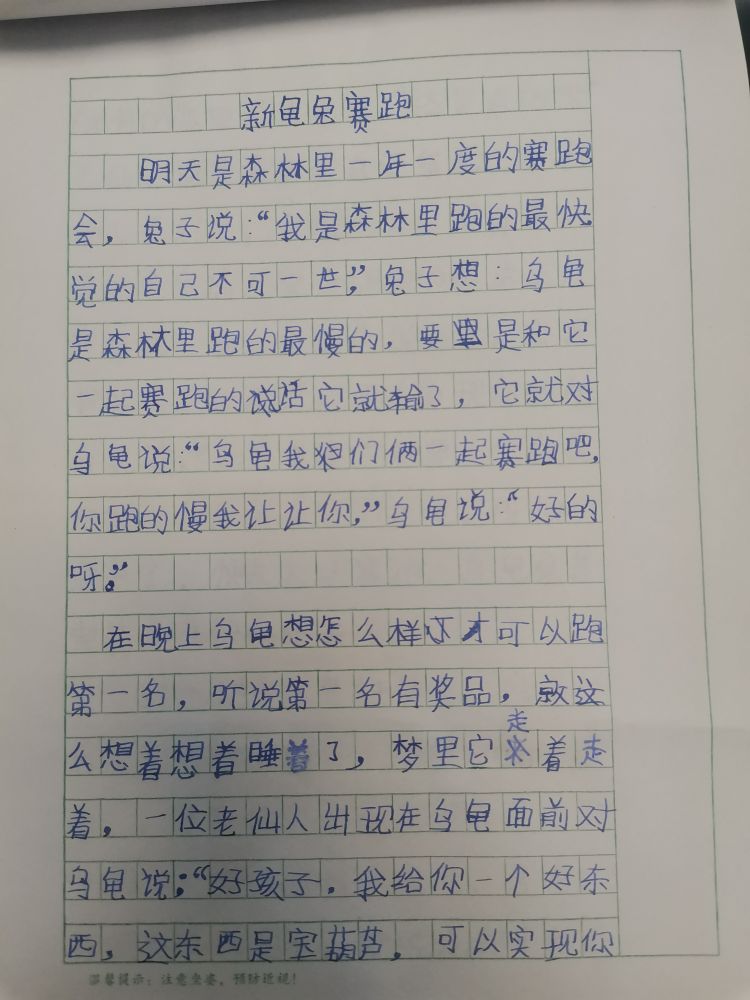 新龟兔赛跑
明天是森林里一年一度的赛跑
会，兔子说：“我是森林里跑的最快，
觉的自己不可一世”，兔子想：乌龟
是森林里跑的最慢的，要是和它
一起赛跑的话它就输了，它就对
乌龟说：“乌龟我们俩一起赛跑吧，
你跑的慢我让让你，”乌龟说：“好的
呀。”
在晚上乌龟想怎么样才可以跑
第一名，听说第一名有奖品，就这
么想着想着睡着了，梦里它走着走
着，一位老仙人出现在乌龟面前对
乌龟说：“好孩子，我给你一个好东
西，这东西是宝葫芦，可以实现你
温馨提示：注意坐姿，预防近视！